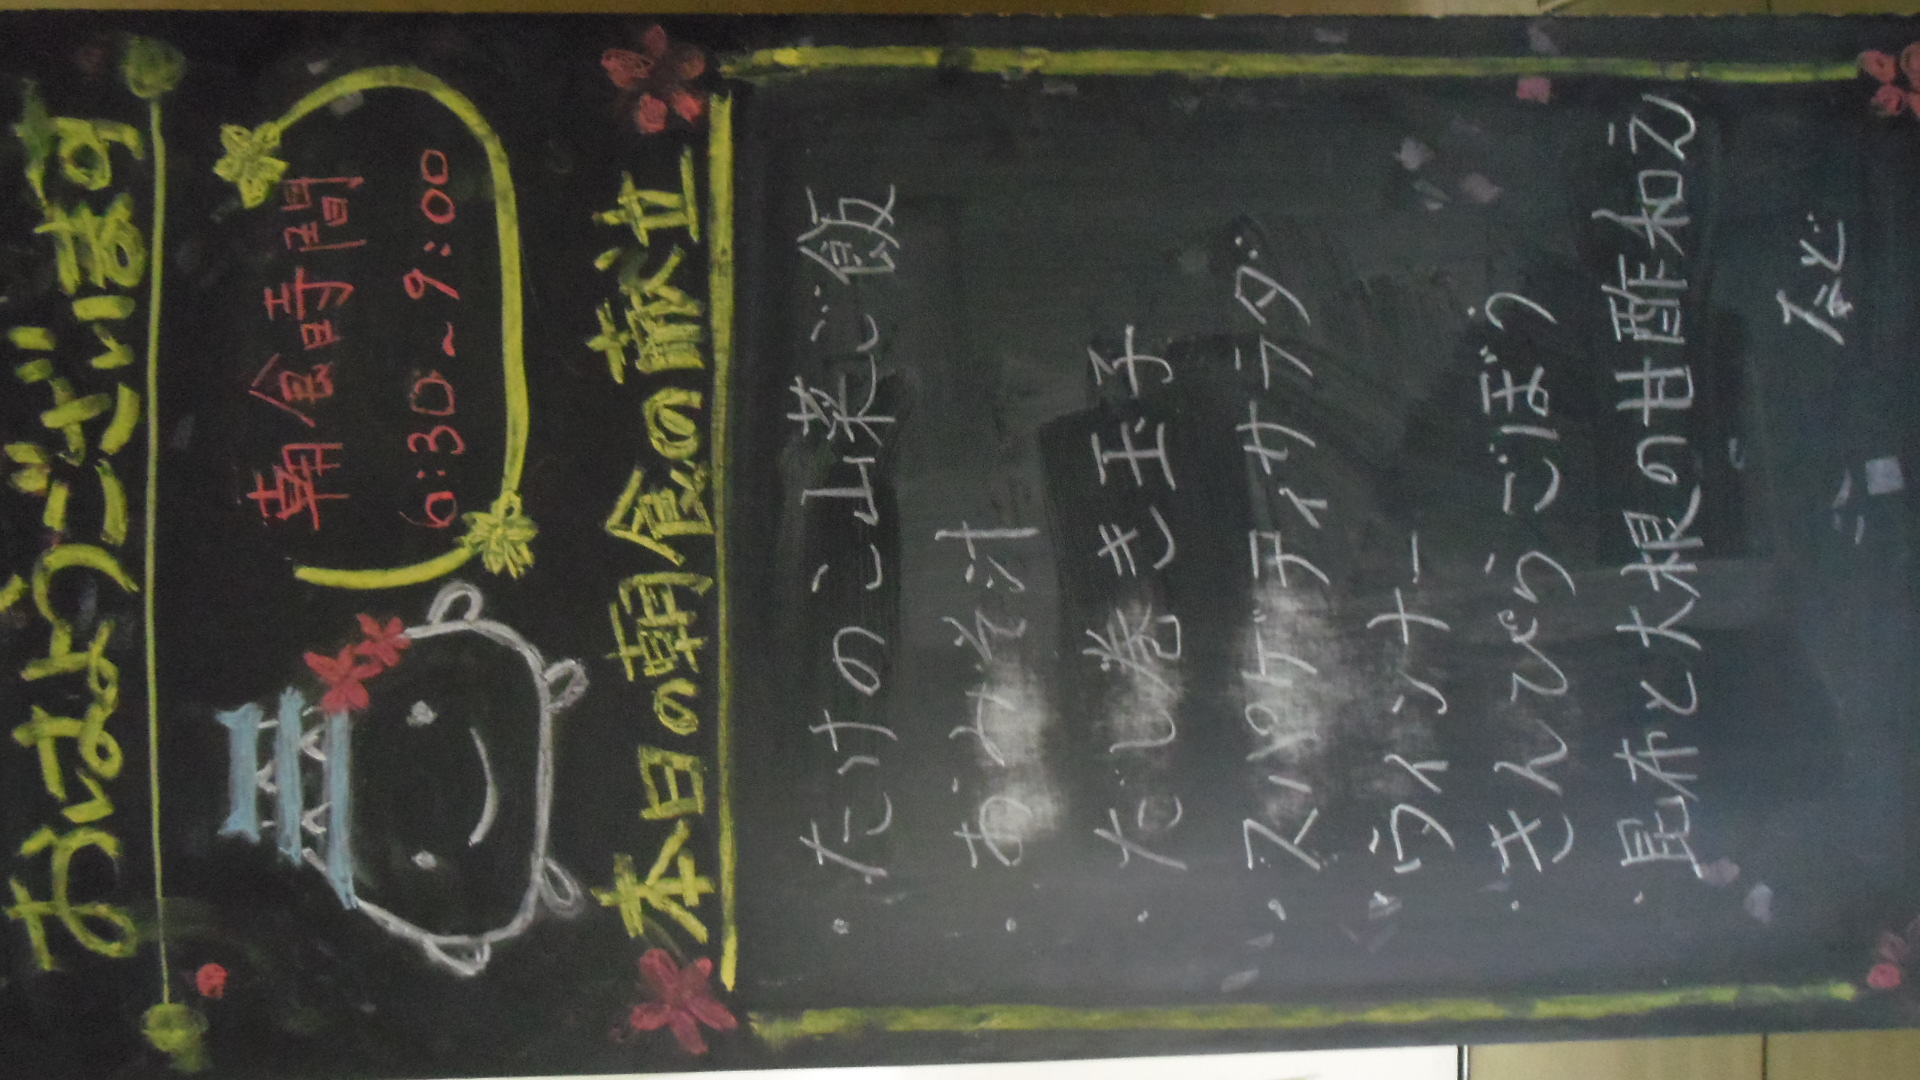 おはようございます
朝食時間
6:30~9:00
本日の朝食の献立
・たけのこ山菜ご飯
・おみそ汁
・だし巻き玉子
・スパゲティサラダ
・ウインナー
・きんぴらごぼう
・昆布と大根の甘酢和え
など